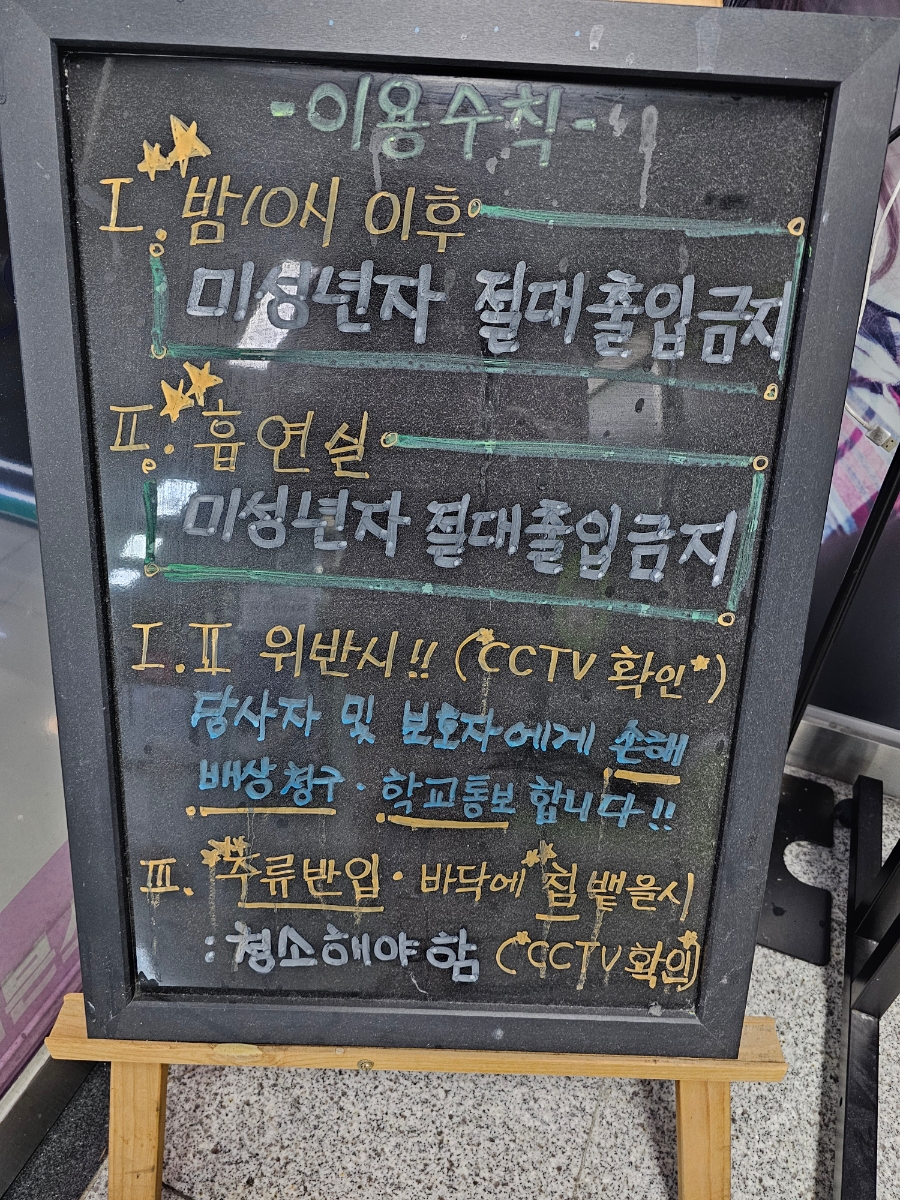 -이용수칙-
I. 밤10시 이후
미성년자 절대출입금지
II. 흡연실
미성년자 절대출입금지
I. II 위반시!! (CCTV 확인)
당사자 및 보호자에게 손해
배상청구·학교통보 합니다!!
III. 주류반입·바닥에 침뱉을시
: 청소해야함 (CCTV확인)